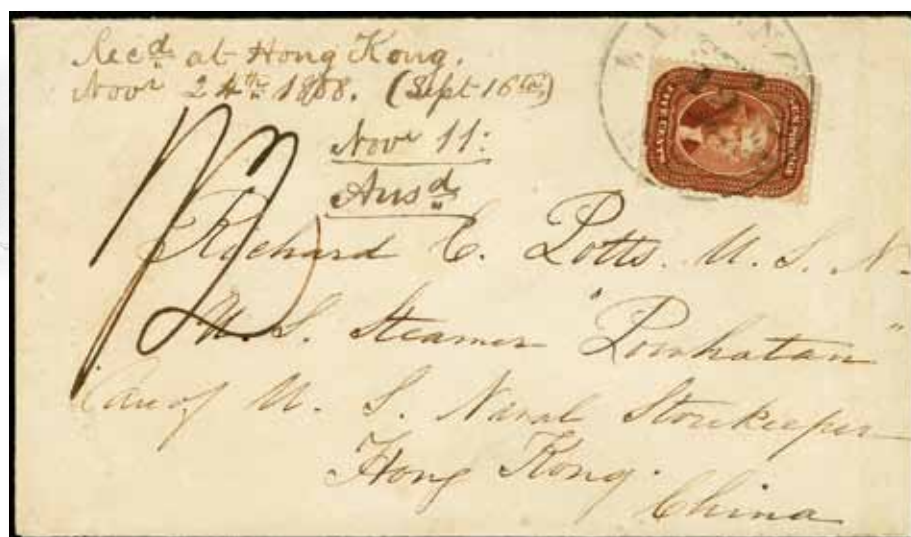 Recd at Hong Kong.
Novr 24th 1858. (Sept 16th)
Novr 11:
Ansd
Richard C. Potts. U. S. N.
U. S. Steamer "Powhatan"
Care of U. S. Naval Storekeeper
Hong Kong.
China